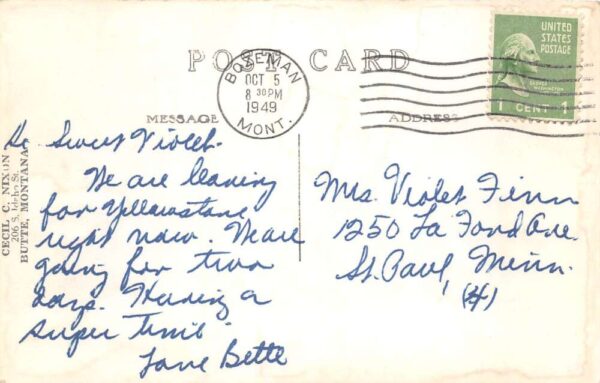 POST CARD
BOZEMAN
OCT 5
8 30 PM
1949
MONT.
UNITED
STATES
POSTAGE
WASHINGTON
1 CENT 1
MESSAGE
ADDRESS
CECIL C. NIXON
206 S. Idaho St.
BUTTE, MONTANA
Sweet Violet.
We are leaving
for Yellowstone
right now. We are
going for two
days. Having a
super time.
Love Bette
Mrs. Violet Finn
1250 La Fond Ave.
St. Paul, Minn.
(4)